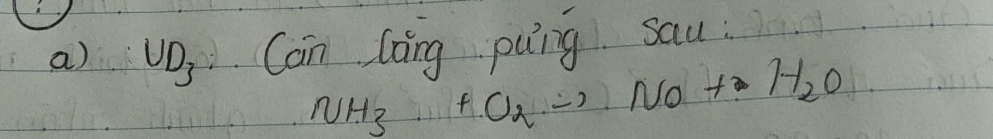 ?
a) VD₃: Cân bằng pứng sau:
NH₃ + O₂ → NO + H₂O